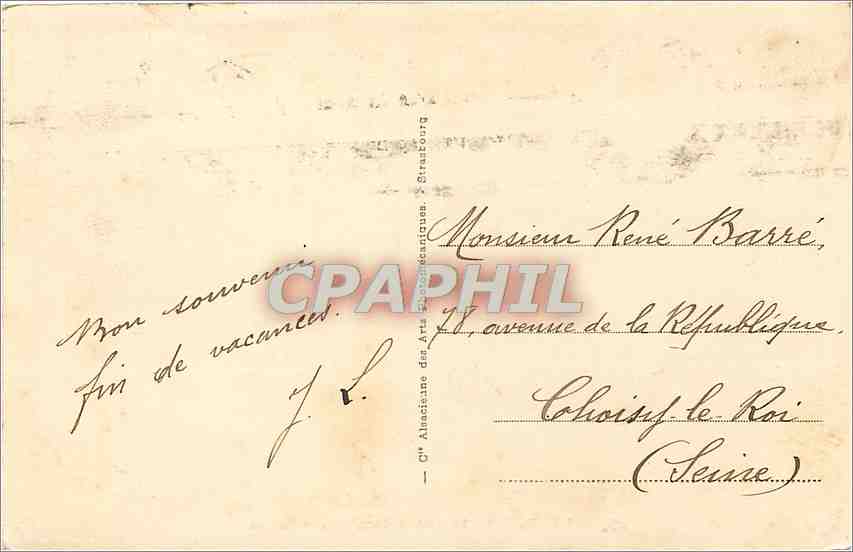 Bon souvenir
fin de vacances.
J. L.
— Cie Alsacienne des Arts Photomécaniques. - Strasbourg
Monsieur René Barré,
78, avenue de la République.
Choisy-le-Roi
(Seine)
CPAPHIL